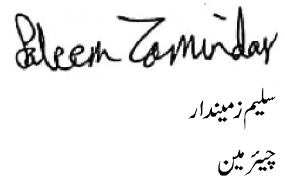 Saleem Zamindar
سلیم زمیندار
چیئر مین